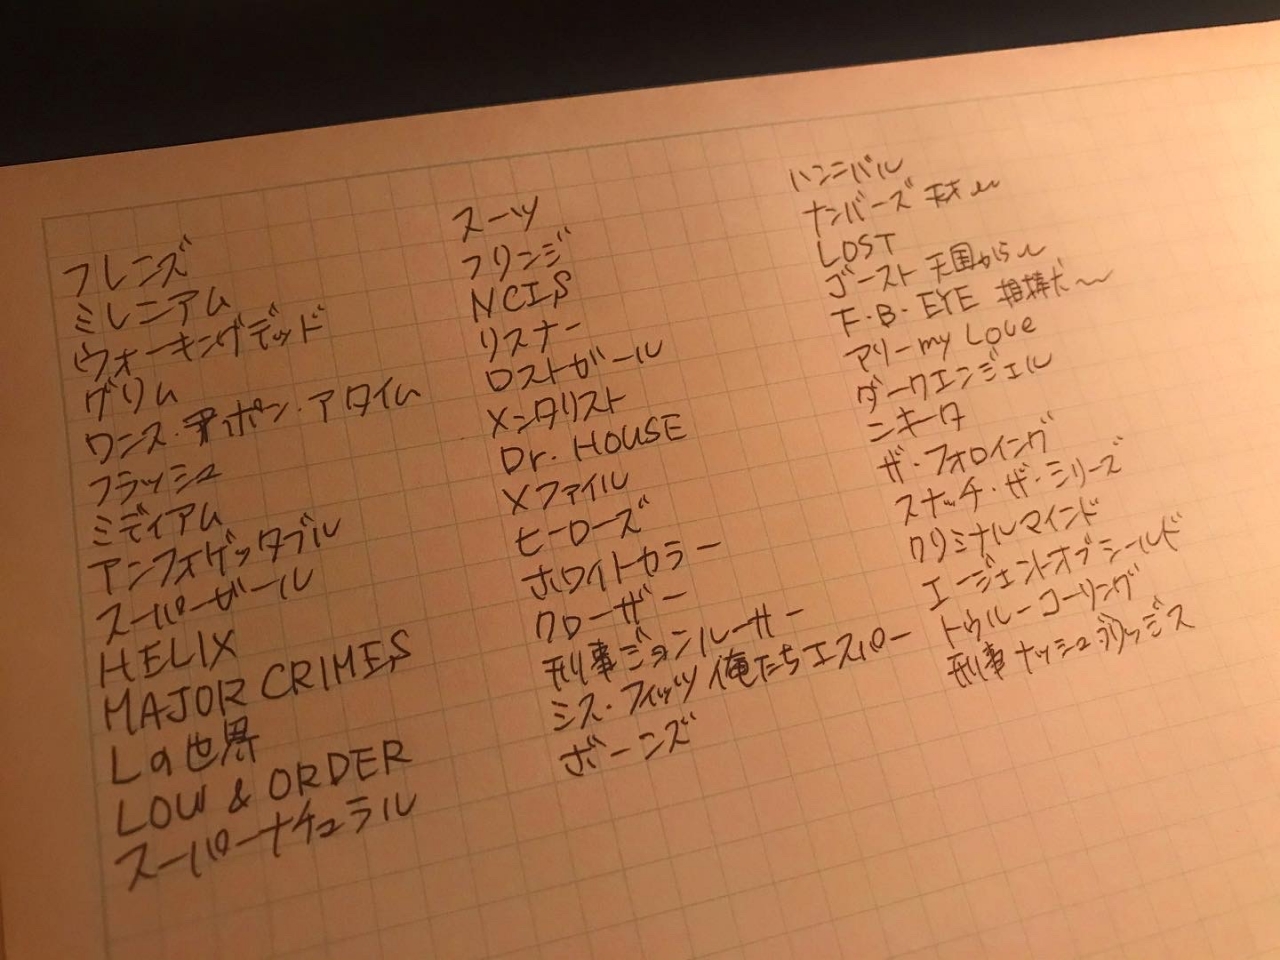 フレンズ
ミレニアム
ウォーキングデッド
グリム
ワンス・アポン・アタイム
フラッシュ
ミディアム
アンフォゲッタブル
スーパーガール
HELIX
MAJOR CRIMES
Lの世界
LOW & ORDER
スーパーナチュラル
スーツ
フリンジ
NCIS
リスナー
ロストガール
メンタリスト
Dr. HOUSE
Xファイル
ヒーローズ
ホワイトカラー
クローザー
刑事ジョンルーサー
ミス・フィッツ 俺たちエスパー
ボーンズ
ハンニバル
ナンバーズ 天才〜
LOST
ゴースト 天国から〜
F・B・EYE 相棒犬〜
アリーmy Love
ダークエンジェル
ニキータ
ザ・フォロイング
スナッチ・ザ・シリーズ
クリミナルマインド
エージェントオブシールド
トゥルーコーリング
刑事ナッシュブリッジス